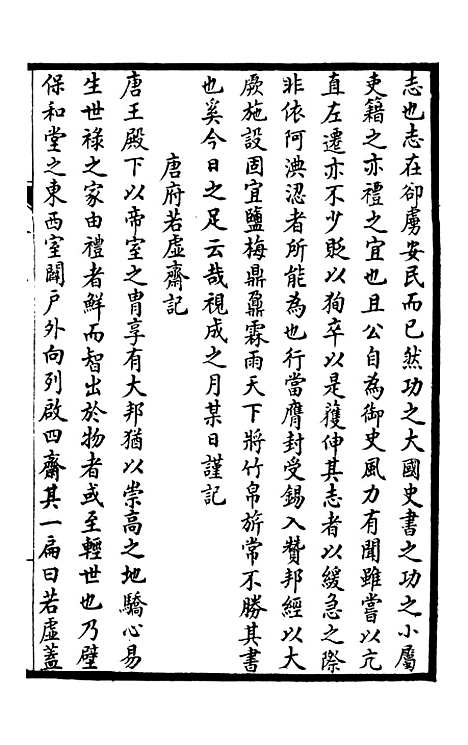 志也志在卻虜安民而已然功之大國史書之功之小屬
吏籍之亦禮之宜也且公自為御史風力有聞雖嘗以亢
直左遷亦不少貶以狥卒以是獲伸其志者以緩急之際
非依阿淟涊者所能為也行當膺封受錫入贊邦經以大
厥施設固宜鹽梅鼎鼐霖雨天下將竹帛旂常不勝其書
也奚今日之足云哉視成之月某日謹記
唐府若虛齋記
唐王殿下以帝室之胄享有大邦猶以崇高之地驕心易
生世祿之家由禮者鮮而智出於物者或至輕世也乃壁
保和堂之東西室闢户外向列啟四齋其一扁曰若虛蓋